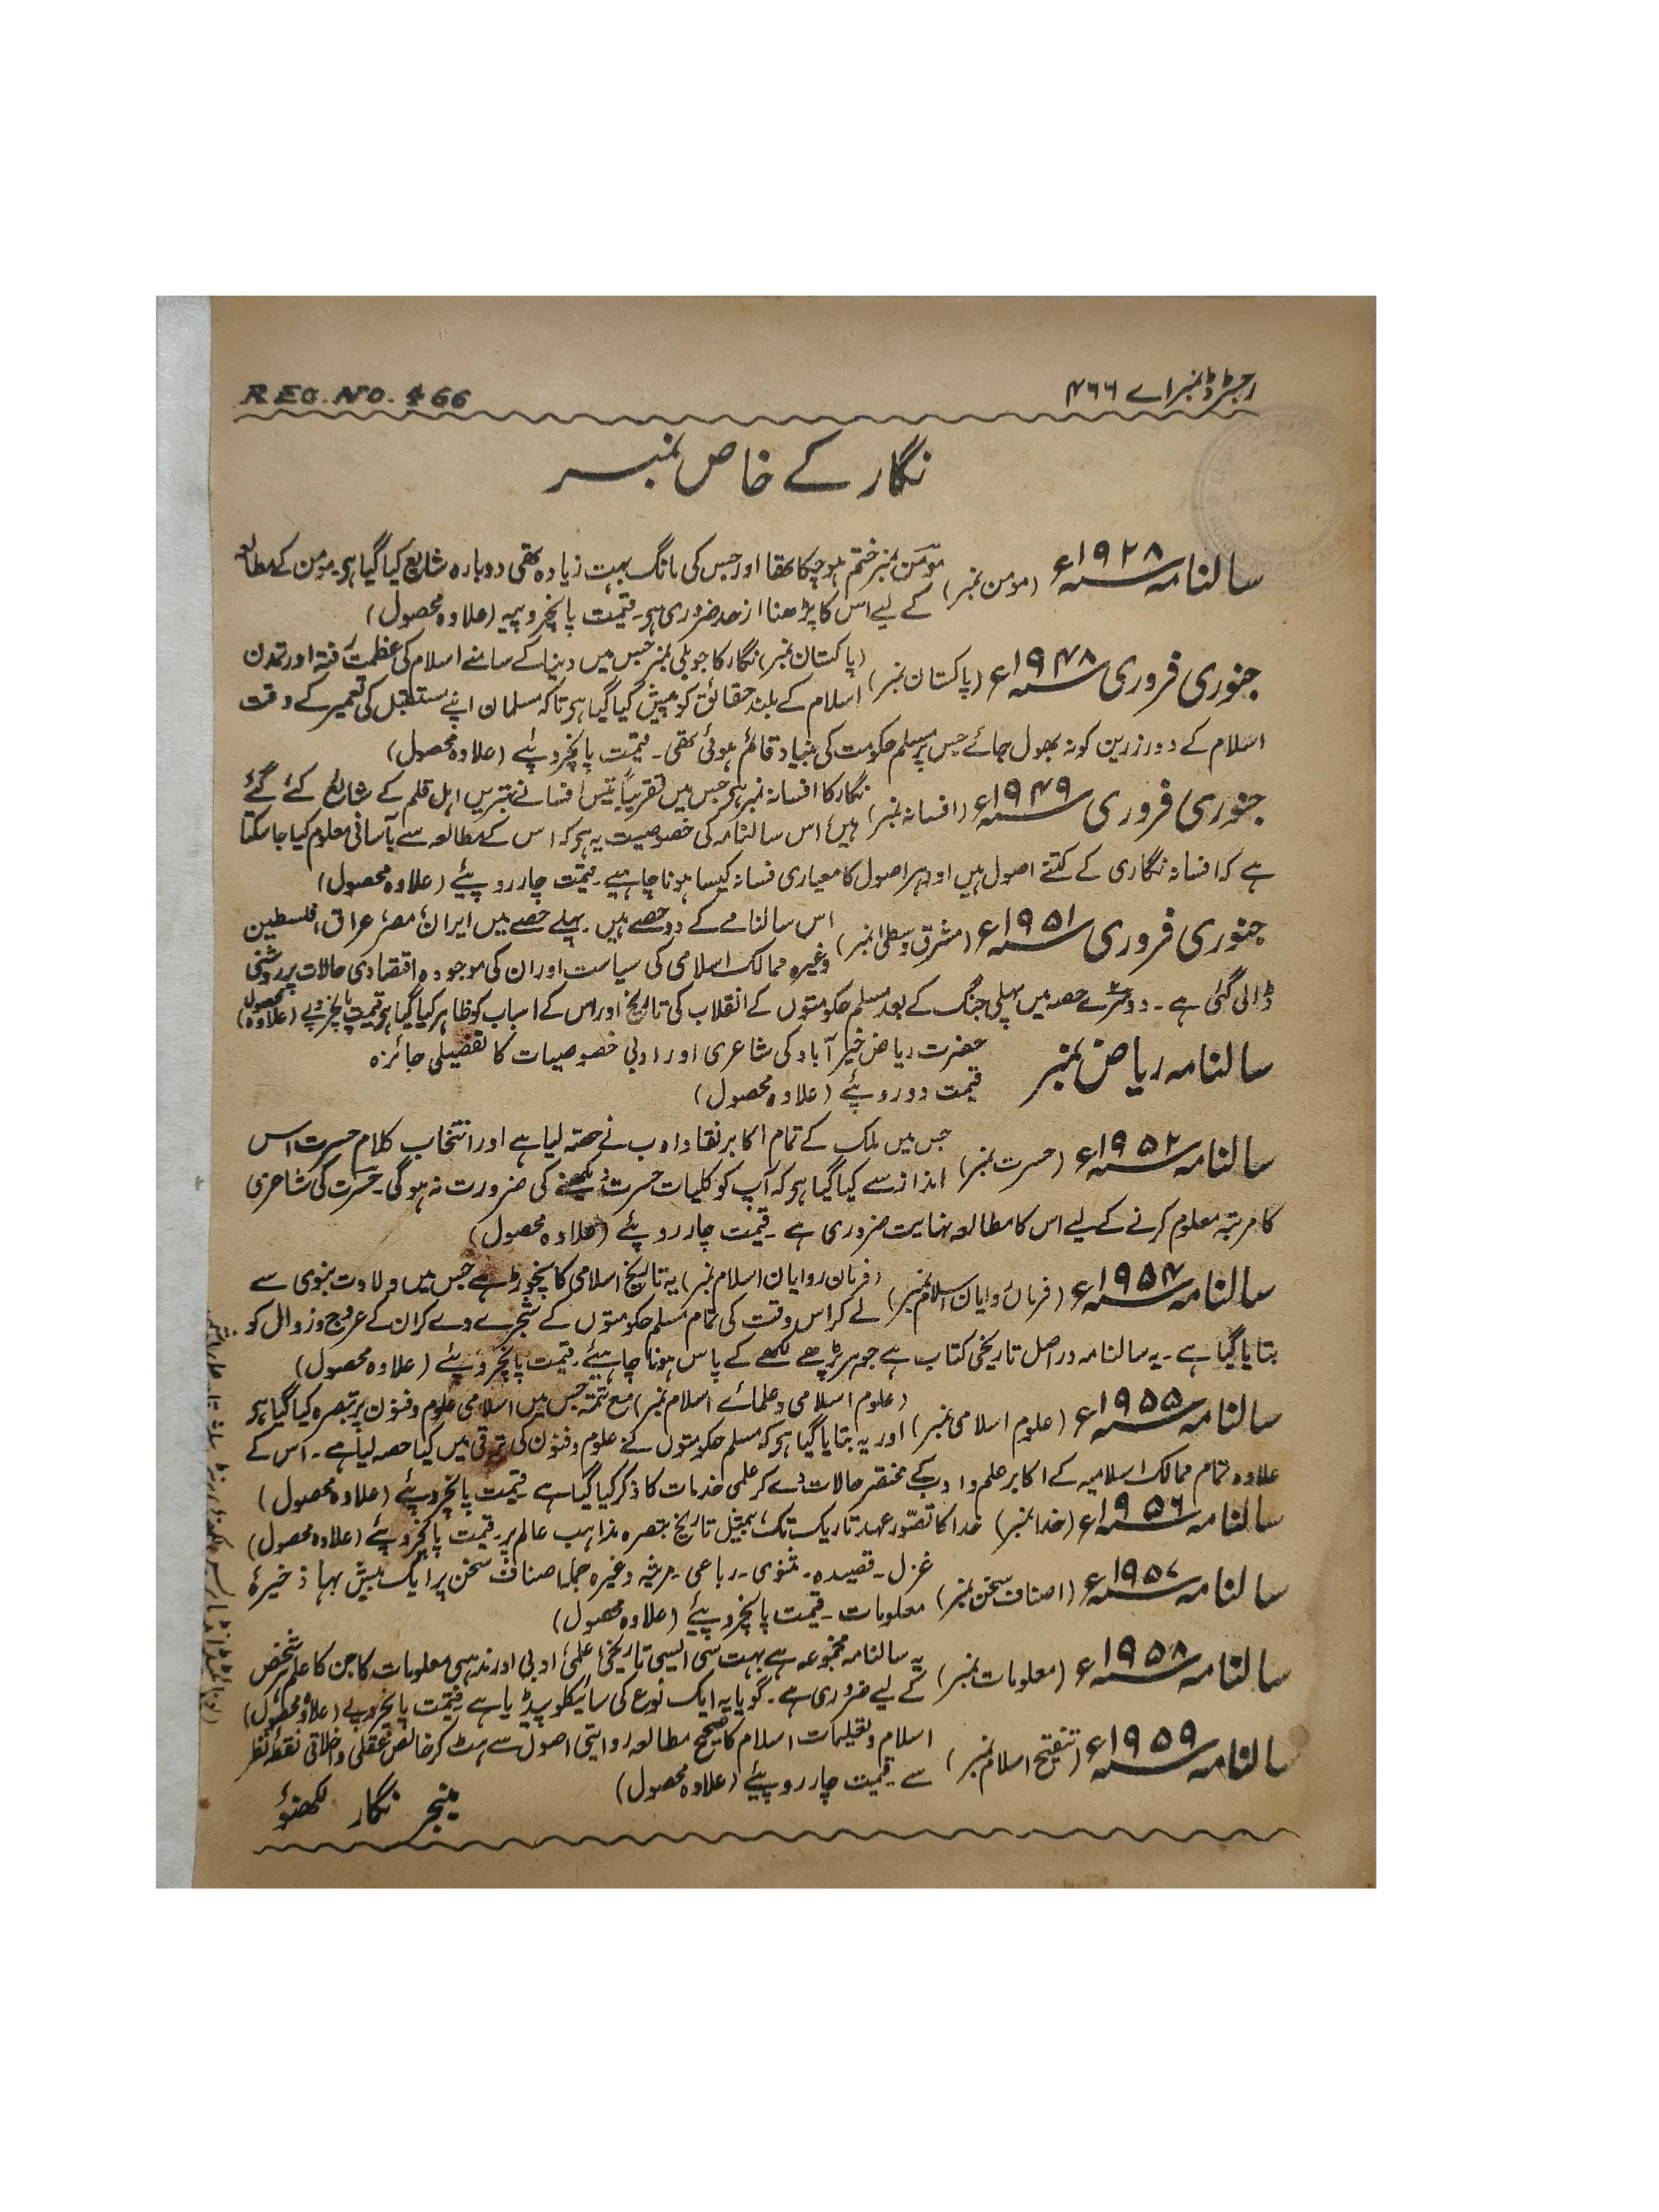 رجسٹرڈ نمبر اے ۴۶۶
REG. NO. 466
نگار کے خاص نمبر
سالنامہ ۱۹۲۸ء (مومن نمبر) مومن نمبر ختم ہو چکا تھا اور جس کی مانگ بہت زیادہ تھی دوبارہ شایع کیا گیا ہو۔ مومن کے مطالعہ
کے لیے اس کا پڑھنا از حد ضروری ہو۔ قیمت پانچروپیہ (علاوہ محصول)
جنوری فروری ۱۹۴۸ء (پاکستان نمبر) (پاکستان نمبر) نگار کا جوبلی نمبر جس میں دنیا کے سامنے اسلام کی عظمت رفتہ اور تمدن
اسلام کے بلند حقائق کو پیش کیا گیا ہو تاکہ مسلمان اپنے مستقبل کی تعمیر کے وقت
اسلام کے دور زرین کو نہ بھول جائے جس پر مسلم حکومت کی بنیاد قائم ہوئی تھی۔ قیمت پانچروپئے (علاوہ محصول)
جنوری فروری ۱۹۴۹ء (افسانہ نمبر) نگار کا افسانہ نمبر ہو جس میں تقریباً تیس افسانے بہتریں اہل قلم کے شایع کئے گئے
ہیں، اس سالنامہ کی خصوصیت یہ ہو کہ اس کے مطالعہ سے بآسانی معلوم کیا جا سکتا
ہے کہ افسانہ نگاری کے کتنے اصول ہیں اور ہر اصول کا معیاری فسانہ کیسا ہونا چاہیے۔ قیمت چار روپئے (علاوہ محصول)
جنوری فروری ۱۹۵۱ء (مشرق وسطیٰ نمبر) اس سالنامے کے دو حصے ہیں۔ پہلے حصے میں ایران، مصر، عراق، فلسطین
وغیرہ ممالک اسلامی کی سیاست اور ان کی موجودہ اقتصادی حالات پر روشنی
ڈالی گئی ہے۔ دوسرے حصہ میں پہلی جنگ کے بعد مسلم حکومتوں کے انقلاب کی تاریخ اور اس کے اسباب کو ظاہر کیا گیا ہو قیمت پانچروپے (علاوہ محصول)
سالنامہ ریاض نمبر حضرت ریاض خیرآباد کی شاعری اور ادبی خصوصیات کا تفصیلی جائزہ
قیمت دو روپئے (علاوہ محصول)
سالنامہ ۱۹۵۲ء (حسرت نمبر) جس میں ملک کے تمام اکابر نقاد ادب نے حصہ لیا ہے اور انتخاب کلام حسرت اس
انداز سے کیا گیا ہو کہ آپ کو کلیات حسرت دیکھنے کی ضرورت نہ ہوگی۔ حسرت کی شاعری
کا مرتبہ معلوم کرنے کے لیے اس کا مطالعہ نہایت ضروری ہے۔ قیمت چار روپئے (علاوہ محصول)
سالنامہ ۱۹۵۴ء (فرمانروایان اسلام نمبر) (فرمان روایان اسلام نمبر) یہ تاریخ اسلامی کا نچوڑ ہے جس میں ولادت نبوی سے
لے کر اس وقت کی تمام مسلم حکومتوں کے شجرے دے کر ان کے عروج و زوال کو
بتایا گیا ہے۔ یہ سالنامہ دراصل تاریخی کتاب ہے جو ہر پڑھے لکھے کے پاس ہونا چاہیئے۔ قیمت پانچروپئے (علاوہ محصول)
سالنامہ ۱۹۵۵ء (علوم اسلامی نمبر) (علوم اسلامی و علمائے اسلام نمبر) مع تتمہ جس میں اسلامی علوم و فنون پر تبصرہ کیا گیا ہو
اور یہ بتایا گیا ہو کہ مسلم حکومتوں نے علوم و فنون کی ترقی میں کیا حصہ لیا ہے۔ اس کے
علاوہ تمام ممالک اسلامیہ کے اکابر علم و ادب کے مختصر حالات دے کر علمی خدمات کا ذکر کیا گیا ہے قیمت پانچروپئے (علاوہ محصول)
سالنامہ ۱۹۵۶ء (خدا نمبر) خدا کا تصور عہد تاریک تک، بمثل تاریخ تبصرہ مذاہب عالم پر۔ قیمت پانچروپئے (علاوہ محصول)
سالنامہ ۱۹۵۷ء (اصناف سخن نمبر) غزل۔ قصیدہ۔ مثنوی۔ رباعی۔ مرثیہ وغیرہ جملہ اصناف سخن پر ایک بیش بہا ذخیرۂ
معلومات۔ قیمت پانچروپیئے (علاوہ محصول)
سالنامہ ۱۹۵۸ء (معلومات نمبر) یہ سالنامہ مجموعہ ہے بہت سی ایسی تاریخی، علمی، ادبی اور مذہبی معلومات کا جن کا علم ہر شخص
کے لیے ضروری ہے۔ گویا یہ ایک نوع کی سائیکلو پیڈیا ہے قیمت پانچروپے (علاوہ محصول)
سالنامہ ۱۹۵۹ء (تنقیح اسلام نمبر) اسلام و تعلیمات اسلام کا صحیح مطالعہ روایتی اصول سے ہٹ کر خالص عقلی و اخلاقی نقطۂ نظر
سے۔ قیمت چار روپیئے (علاوہ محصول)
منیجر نگار لکھنؤ